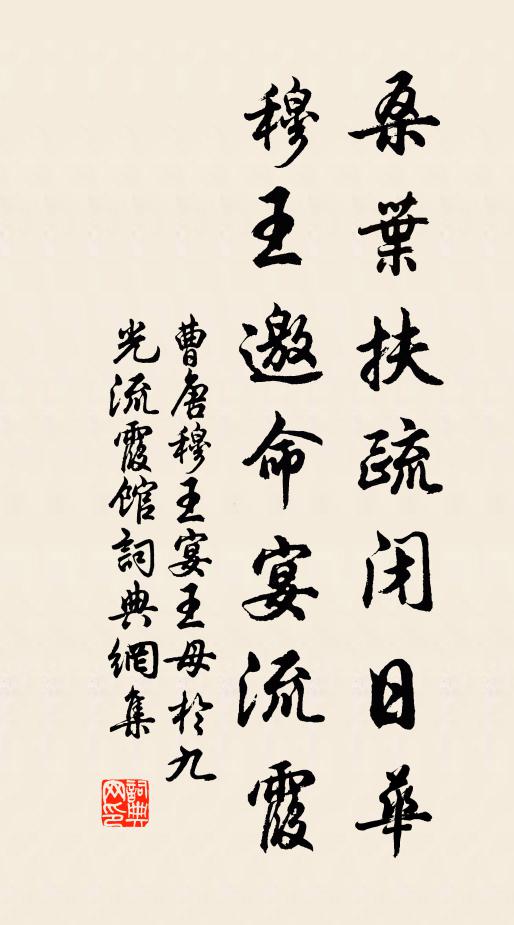 桑葉扶疏閉日華
穆王邀命宴流霞
曹唐穆王宴王母於九
光流霞館詞典網集
詞典
网印